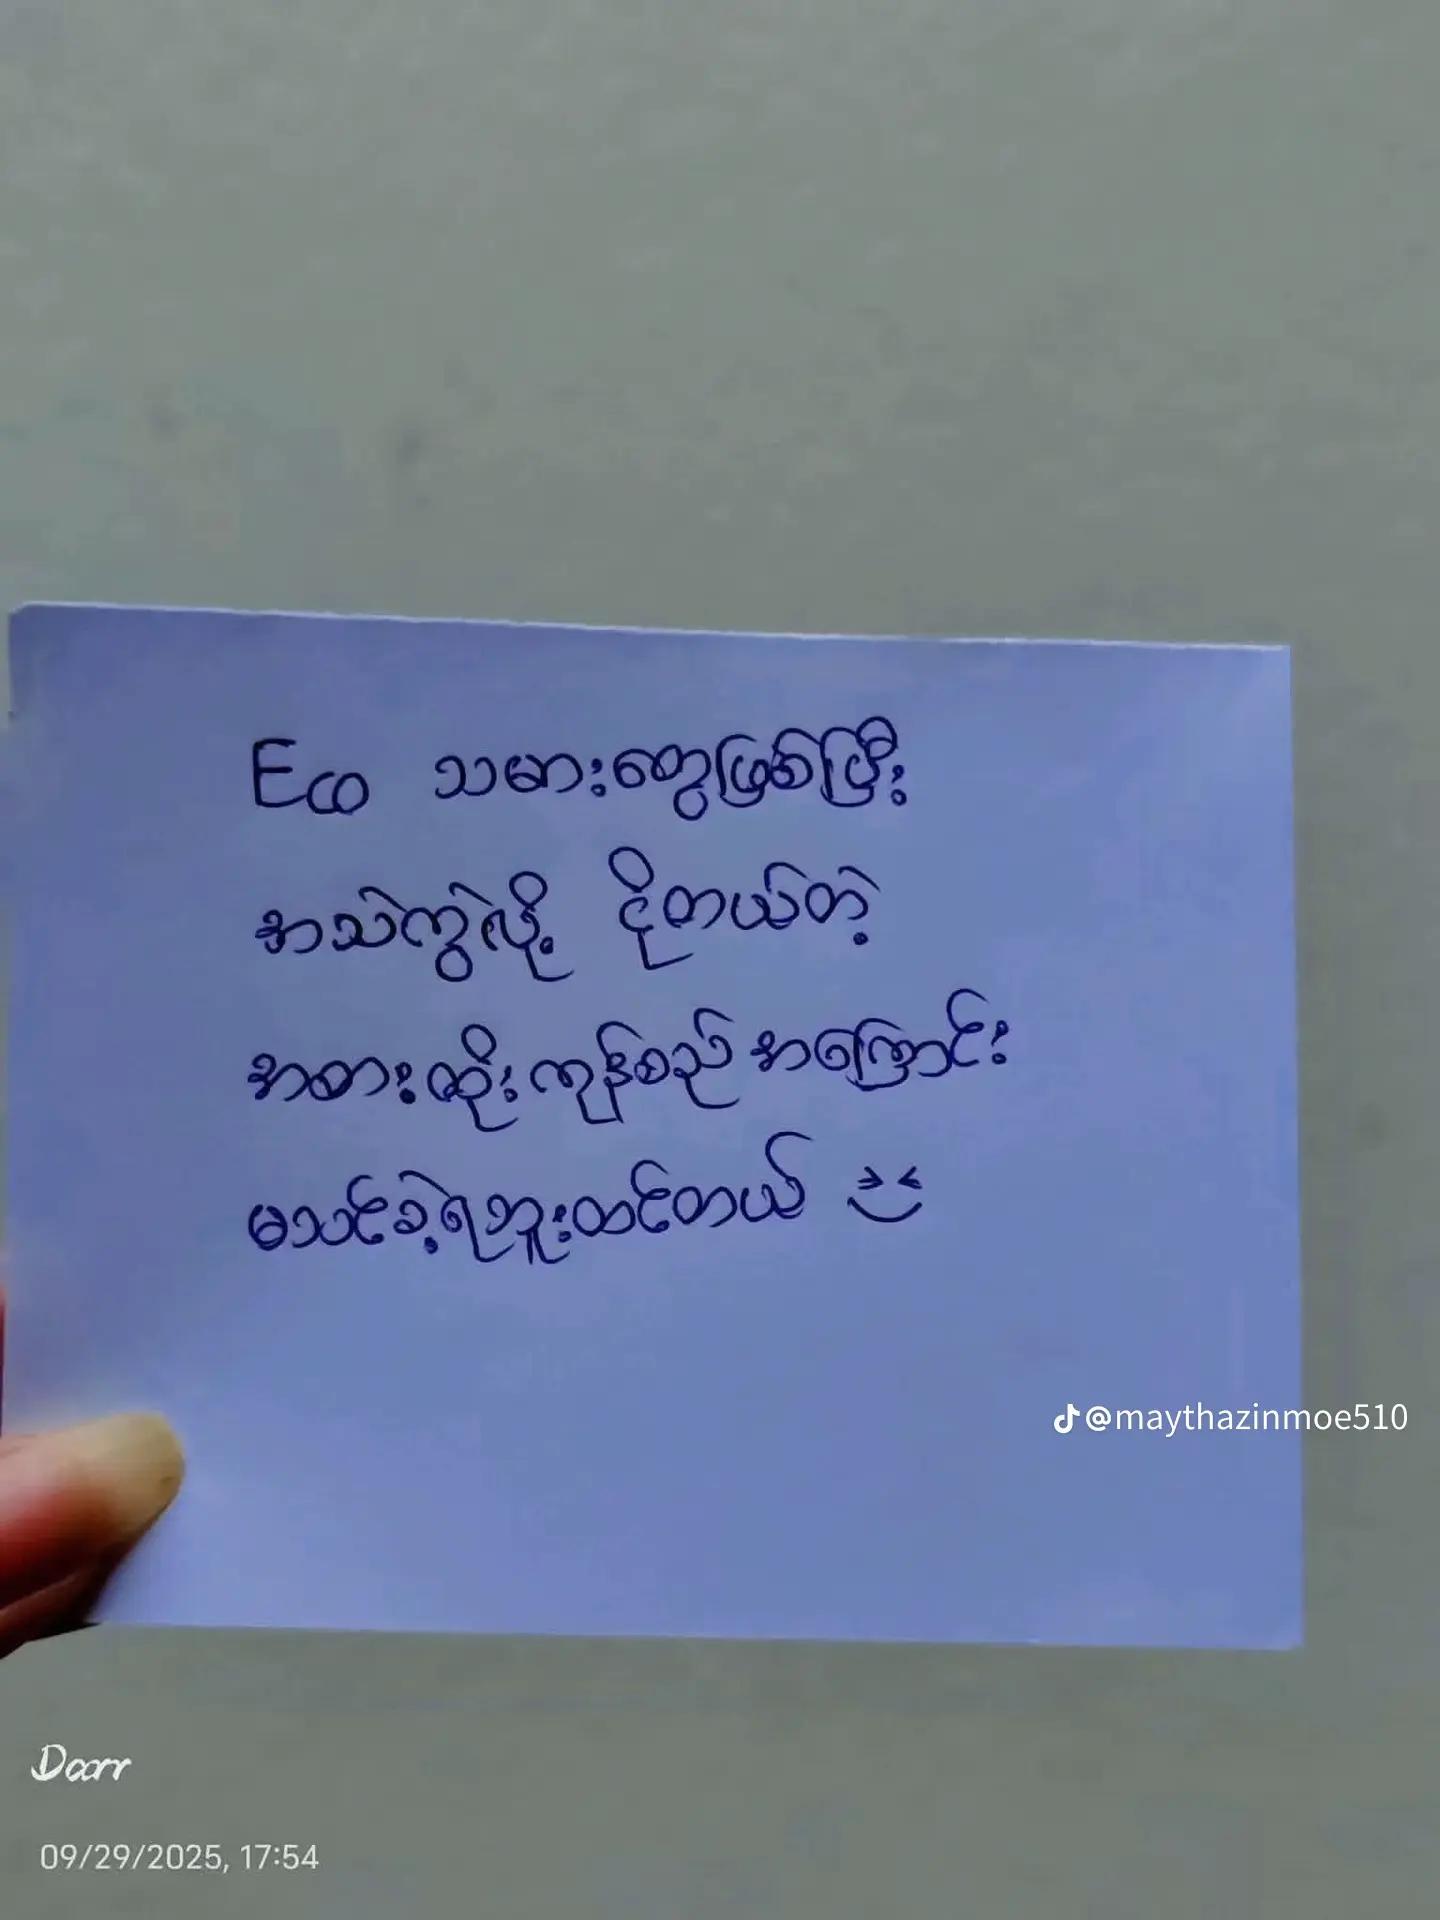 Eco သမားတွေဖြစ်ပြီး
အသဲကွဲလို့ ငိုတယ်တဲ့
အစားထိုးကုန်စည်အကြောင်း
မသင်ခဲ့ရဘူးထင်တယ်
@maythazinmoe510
Darr
09/29/2025, 17:54